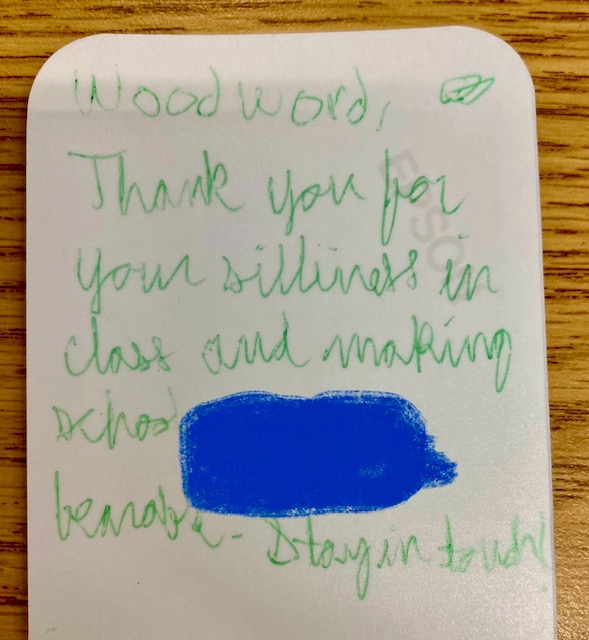 Woodword,
Thank you for
your silliness in
class and making
school
bearable - Stay in touch!